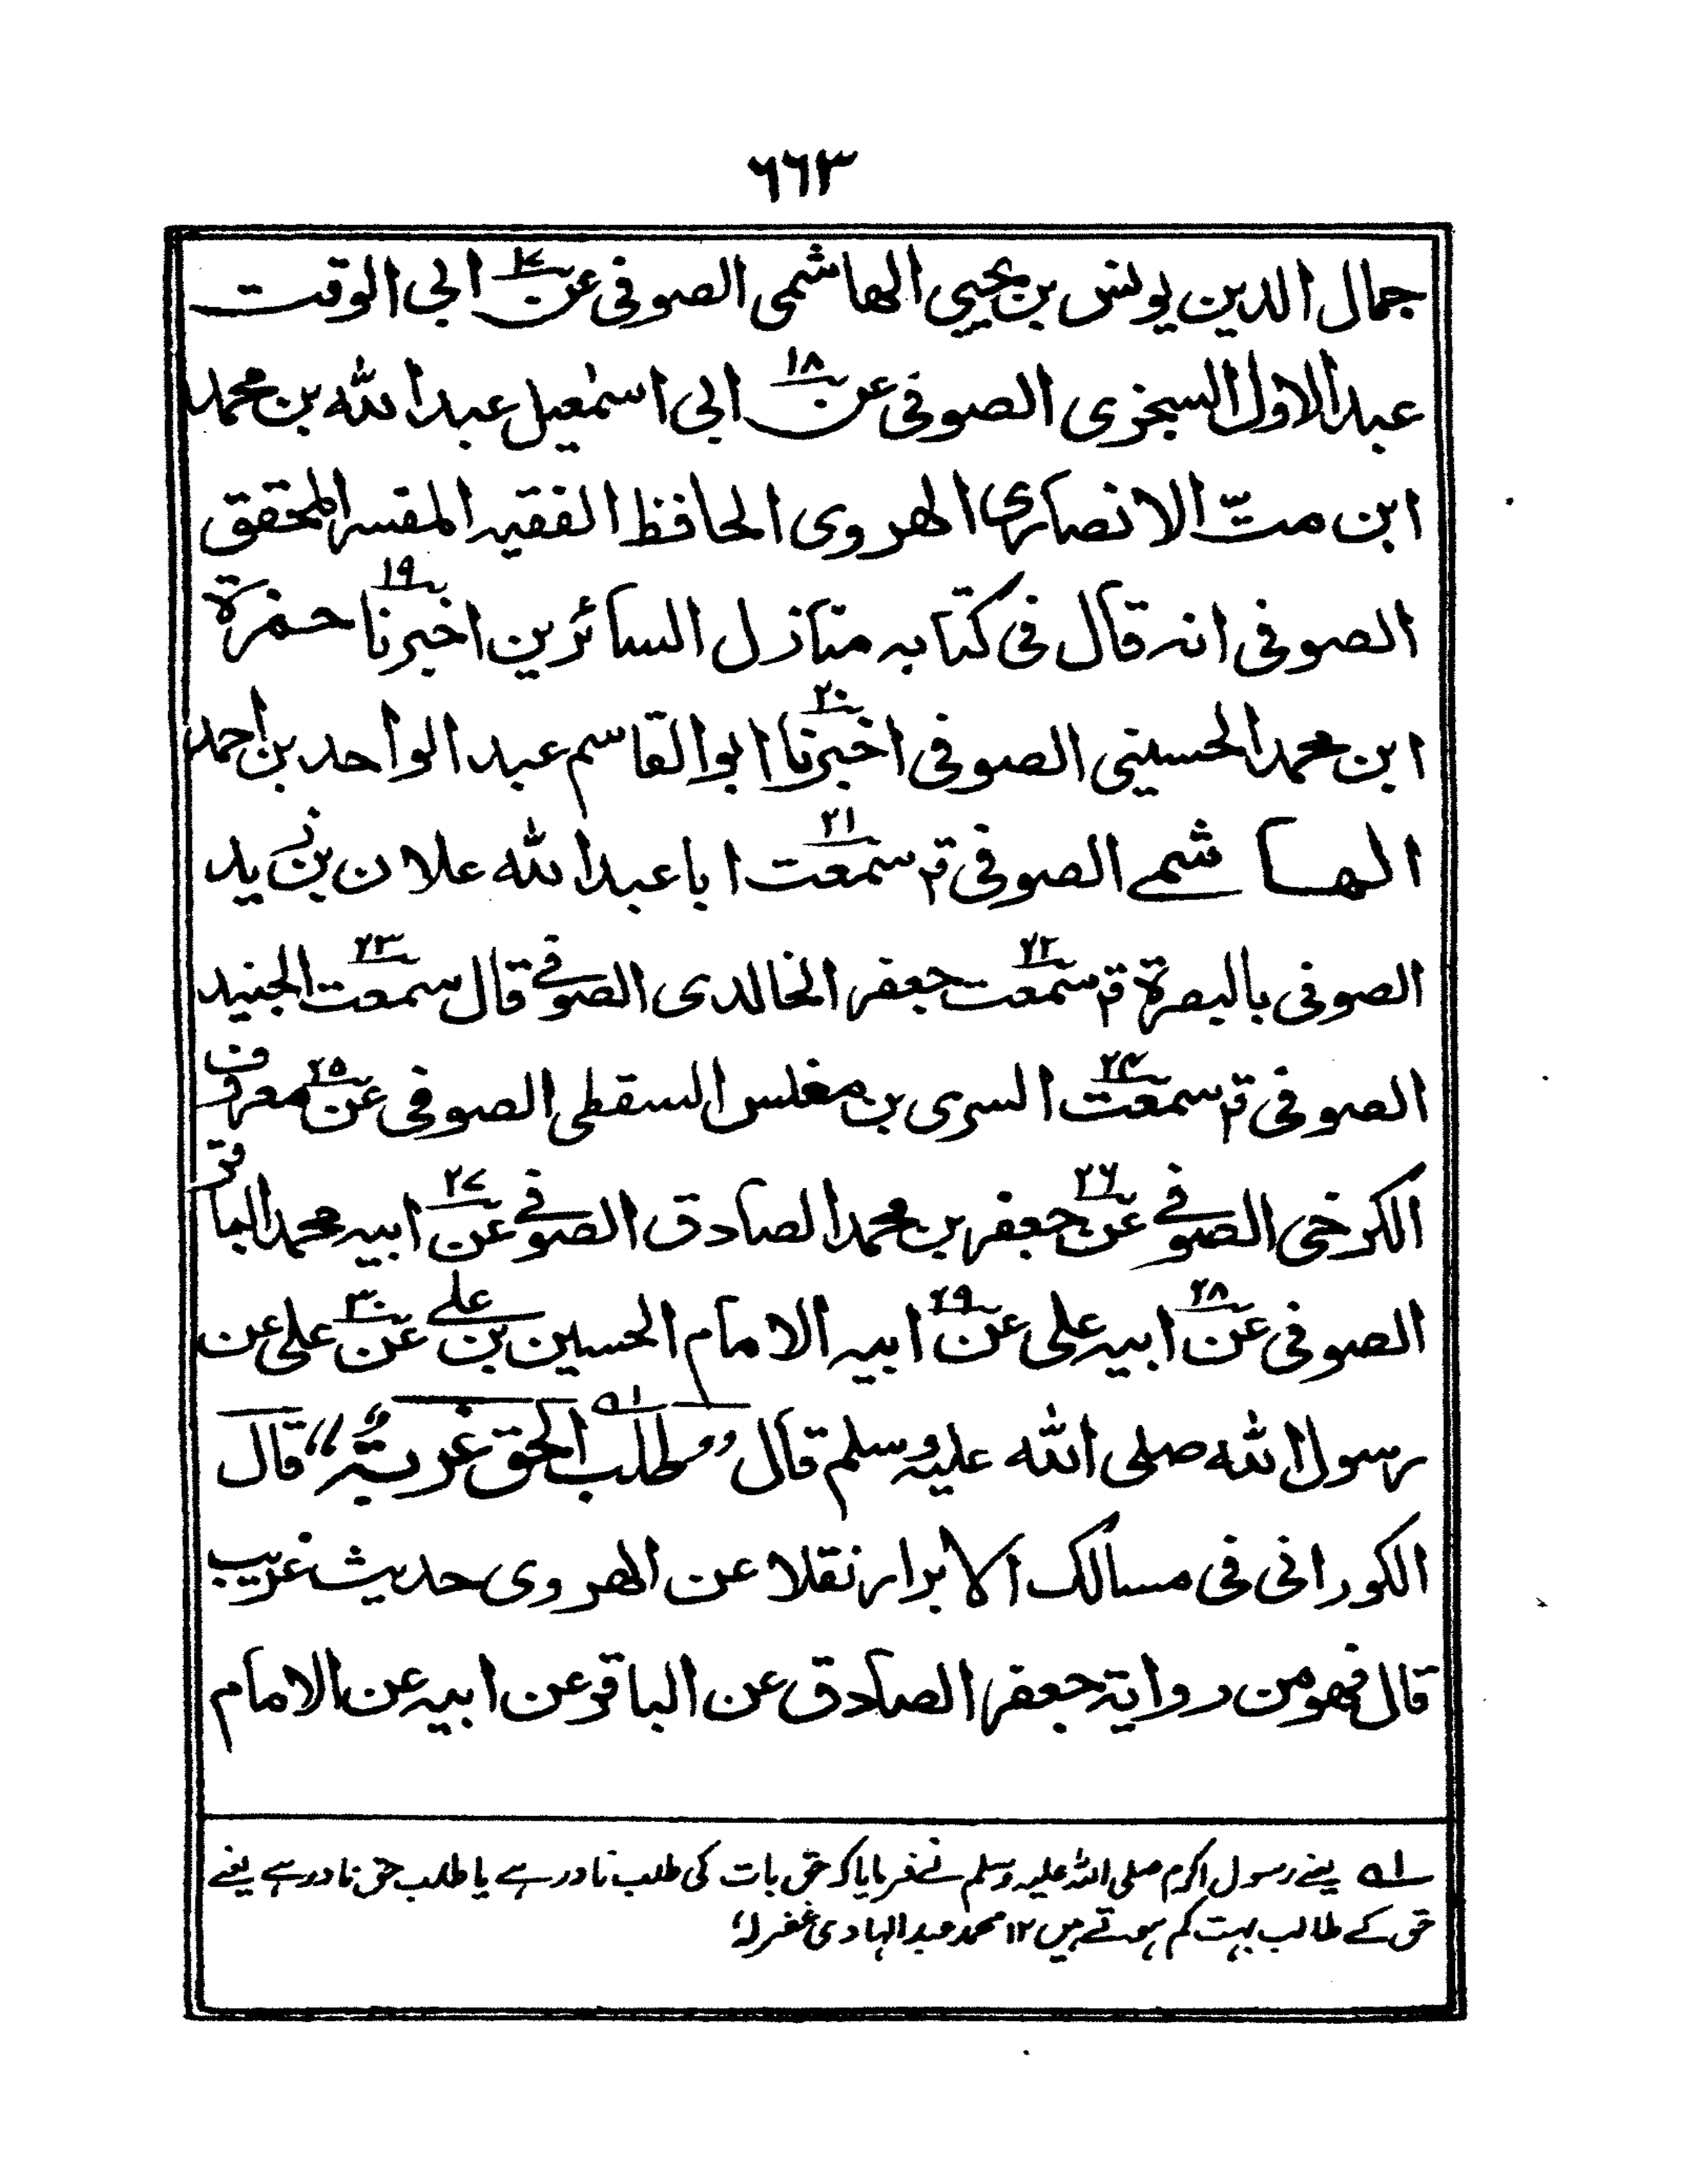 ٦٦٣
جمال الدين يونس بن يحيى الهاشمى الصوفى عن ١٧ ابى الوقت
عبد الاول السجزى الصوفى عن ١٨ ابى اسمٰعيل عبد الله بن محمد
ابن متّ الانصارى الهروى الحافظ الفقيه المفسر المحقق
الصوفى انه قال فى كتابه منازل السائرين اخبرنا ١٩ حمزة
ابن محمد الحسينى الصوفى اخبرنا ٢٠ ابو القاسم عبد الواحد بن احمد
الهاشمے الصوفى قم سمعت ٢١ ابا عبد الله علان بن زيد
الصوفى بالبصرة قم سمعت ٢٢ جعفر الخالدى الصوفے قال سمعت ٢٣ الجنيد
الصوفى قم سمعت ٢٤ السرى بن مغلس السقطى الصوفى عن ٢٥ معروف
الكرخى الصوفے عن ٢٦ جعفر بن محمد الصادق الصوفے عن ٢٧ ابيه محمد الباقر
الصوفى عن ٢٨ ابيه على عن ٢٩ ابيه الامام الحسين بن علے عن ٣٠ على عن
رسول الله صلى الله عليه وسلم قال ”طلب الحق غربةٌ“ ١ه قال
الكورانى فى مسالك الابرار نقلا عن الهروى حديث غريب
قال فهو من رواية جعفر الصادق عن الباقر عن ابيه عن الامام
١ه یعنے رسول اکرم صلی اللہ علیہ وسلم نے فرمایا کہ حق بات کی طلب نادر ہے یا طلب حق نادر ہے یعنے
حق کے طالب بہت کم ہوتے ہیں ١٢ محمد عبد الہادی غفرلہٗ